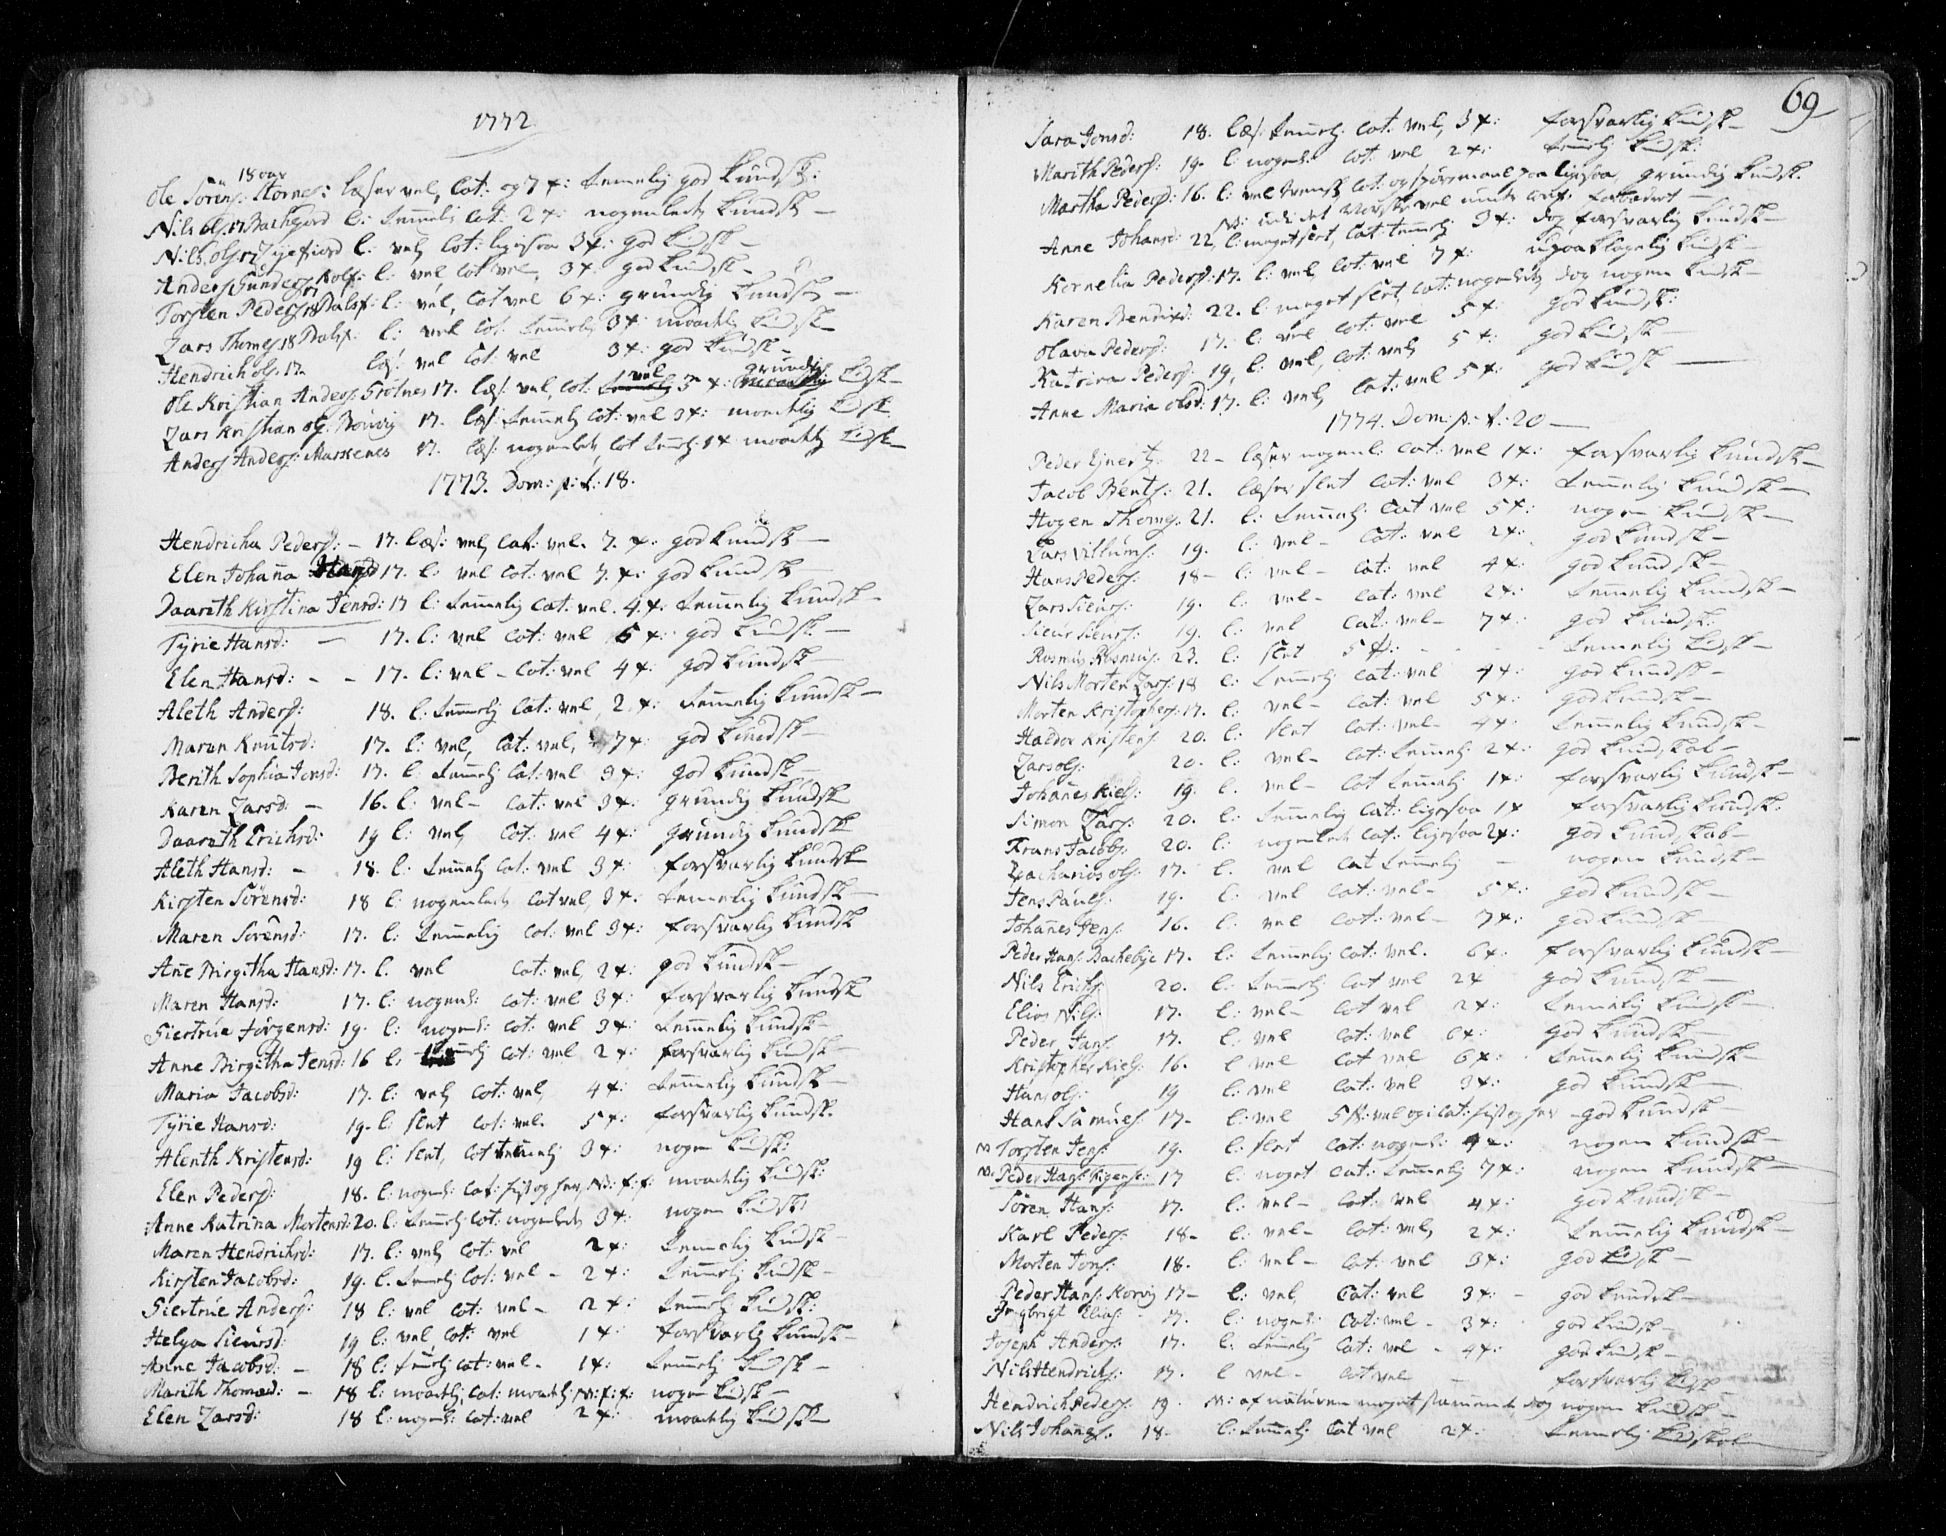 1772
18 aar
Ole Sörens: Stornes: læser vel, Cat: og 7 x: temmelig god kundsk:
Nils Ols: 17 Bachejord l: temmelig Cat: 2 x: nogenledes kundsk
Nils Ols: 17 l: vel, Cat: ligesaa 3 x: god kundsk
Anders Gunders: 17 l: vel Cat vel, 3 x: god kundsk
Torsten Peders: 18 l: vel, Cat vel 6 x: grundig kundsk
Lars Thomes: 18 l: vel Cat: temmelig 3 x: maadelig kundsk
Hendrich Ols: 17. læs: vel Cat: vel 3 x: god kundsk
vel grundig
Ole Kristian Anders: Grötnes 17. læs: vel, Cat: 5 x: kundsk
Lars Kristian Ols: 17. læs: temmelig Cat: vel 3 x: maadelig kundsk
Anders Anders: Markenes 17. læs: nogenledes Cat temmelig 1 x maadelig kundsk
1773. Dom: p: t: 18.
Hendricha Peders: – 17. læs: vel, Cat: vel. 7. x: god kundsk
Elen Johanna Hansd 17. l: vel Cat: vel 7. x: god kundsk
Daarith Kirstina Jensd: 17 l: temmelig Cat: vel. 4. x: temmelig kundsk
Tyrie Hansd: – 17. l: vel Cat: vel 5 x: god kundsk
Elen Hansd: – – 17. l: vel – Cat: vel 4 x: god kundsk
Aleth Anders: 18. l: temmelig Cat: vel, 2. x: temmelig kundsk
Maren Knutsd: 17. l: vel, Cat: vel, 7 x: god kundsk
Berith Sophia Jonsd: 17. l: temmelig Cat: vel 3 x: god kundsk
Karen Larsd: – 16. l: vel – Cat: vel 3 x: grundig kundsk
Daarath Erichsd: 19 l: vel, Cat: vel 4 x: grundig kundsk
Aleth Hansd: – 18. l: temmelig Cat: vel 3 x: forsvarlig kundsk
Kirsten Sörensd: 18 l: nogenledes Cat vel, 3 x: temmelig kundsk
Maren Sörensd: 17. l: temmelig Cat: vel 3 x: forsvarlig kundsk
Anne Birgitha Hansd: 17. l. vel Cat: vel, 2 x: god kundsk
Maren Hansd: 17. l: nogenl: Cat: vel 3 x: forsvarlig kundsk
Siertrue Jörgensd: 19. l: nogenl: Cat: vel 3 x: temmelig kundsk
Anne Birgitha Jensd: 16 l: temmelig Cat: vel 2 x: forsvarlig kundsk
Maria Jacobsd: 17. l: vel, Cat: vel, 4 x: temmelig kundsk
Tyrie Hansd: 19. l: slet Cat: vel. 5 x: forsvarlig kundsk.
Alenth Kristensd: 19 l: slet, Cat temmelig 3 x: nogen kundsk:
Elen Peders: 18. l: nogenl: Cat: N: f: f: maadelig kundsk:
Anne Katrina Mortensd: 20. l: temmelig Cat: nogenledes 3 x: nogen kundsk:
Maren Hendrichsd: 17. l: vel, Cat: vel 2 x: temmelig kundsk
Kirsten Jacobsd: 19. l: temmelig Cat: vel – 2 x: temmelig kundsk
Siertrue Anders: 18 l: vel Cat: vel – 2 x: temmelig kundsk:
Helga Sieursd: 19 l: vel Cat: vel 1 x: forsvarlig kundsk
Anne Jacobsd: – 18 l: temmelig Cat: vel – 1 x: temmelig kundsk
Marith Thomasd: – 18 l: maadelig Cat: maadelig N: f: f: nogen kundsk
Elen Larsd: 18 l: nogenl: Cat: vel 2 x: maadelig kundsk
69
Sara Jonsd: 18. læs: temmelig Cat: vel, 3 x: forsvarlig kundsk
Marith Peders: 19. l: nogenl: Cat: vel 2 x: temmelig kundsk:
Martha Peders: 16. l: vel svensk Cat: og spörsmaal paa ligesaa, grundig kundsk.
N: det Norske vel
Anne Johansd: 22, l: meget slet, Cat temmelig 3 x: dog forsvarlig kundsk
Kornelia Peders: 17. l: vel, Cat: vel 7 x: upaaklagelig kundsk
Karen Bendixd: 22. l: meget slet, Cat: nogenledes dog nogen kundsk
Olava Peders: 17. l: vel Cat: vel 5 x: god kundsk:
Katrina Peders: 19, l: vel, Cat: vel, 5 x: god kundsk
Anne Maria Olsd: 17. l: vel, Cat: vel 5 x: god kundsk
1774. Dom: p: t: 20
Peder Ejnerts: 22 – læser nogenl: Cat: vel 1 x: forsvarlig kundsk
Jacob Bents: 21. læser slet Cat: vel 3 x: temmelig kundsk
Hogen Thomes: 21. l: temmelig Cat vel 5 x: nogen kundsk
Lars Villums: 19. l: vel – Cat: vel 2 x: god kundsk
Hans Peders: 18 – l: vel – Cat: vel 4 x: god kundsk
Lars Sieurs: 19. l: vel – Cat: vel 2 x: temmelig kundsk
Sieur Sieurs: 19. l: vel Cat: vel – 7 x: god kundsk:
Rasmus Rasmus: 23. l: slet 5 – – – temmelig kundsk
Nils Morten Lars: 18 l: temmelig Cat: vel 4 x: god kundsk
Morten Kristophers: 17. l: vel – Cat: vel 5 x: god kundsk
Haldor Kristens 20. l: slet Cat: vel – 4 x: temmelig kundsk
Lars Ols: 20. l: vel – Cat: temmelig 2 x: god kundskab
Johannes Niels: 19. l. vel – Cat temmelig 1 x: forsvarlig kundsk
Simon Lars: 20. l: temmelig Cat: ligesaa 1 x forsvarlig kundsk:
Frans Jacobs: 20. l: nogenledes Cat: ligesaa 2 x: god kundskab
Zacharias Ols: 17. l. vel Cat temmelig – nogen kundsk
Jens Pauls: 19. l: vel Cat: vel – 5 x: god kundsk
Johannes Jens: 16. l: vel Cat: vel – 7 x: god kundsk
Peder Hans: Bachebye 17. l: temmelig Cat: vel. 6 x: forsvarlig kundsk
Nils Erichs: 20. l: temmelig Cat vel 2 x god kundsk
Elias Nils: 17. l: vel – Cat vel 2 x: temmelig kundsk
Peder Jans: 17. l: vel Cat: vel 6 x: god kundsk
Kristopher Niels: 16. l vel Cat vel 6 x: temmelig kundsk
Hans Ols: 19 l: vel Cat: vel 3 x: god kundsk
Hans Samuels: 17 – l: vel god kundsk
N Torsten Jens: 19. l: slet Cat: nogenl: 4 x: nogen kundsk
N: Peder Hans: 17 l: noget Cat: temmelig 7 x: nogen kundsk
Sören Hans: 17. l: vel – Cat: vel 4 x: god kundsk
Karl Peders: 18 – l: vel – Cat: vel, 2 x: temmelig kundsk
Morten Jons: 18. l: vel – Cat: vel 3 x: god kundsk
Peder Hans: Korvig 17 – l: vel, Cat: vel 3 x: – god kundsk
Ingbrigt Elias: 17. l: nogenl: Cat: vel – 3 x: god kundsk
Joseph Anders: 17. l: temmelig Cat: vel – 4 x: god kundsk
Nils Hendrichs: 17. l vel – Cat vel – forsvarlig kundsk
Hendrich Peders: 19. N: af naturen noget stammende dog nogen kundsk
Nils Johans: 18 – l: temmelig Cat vel 2 x: temmelig kundskab